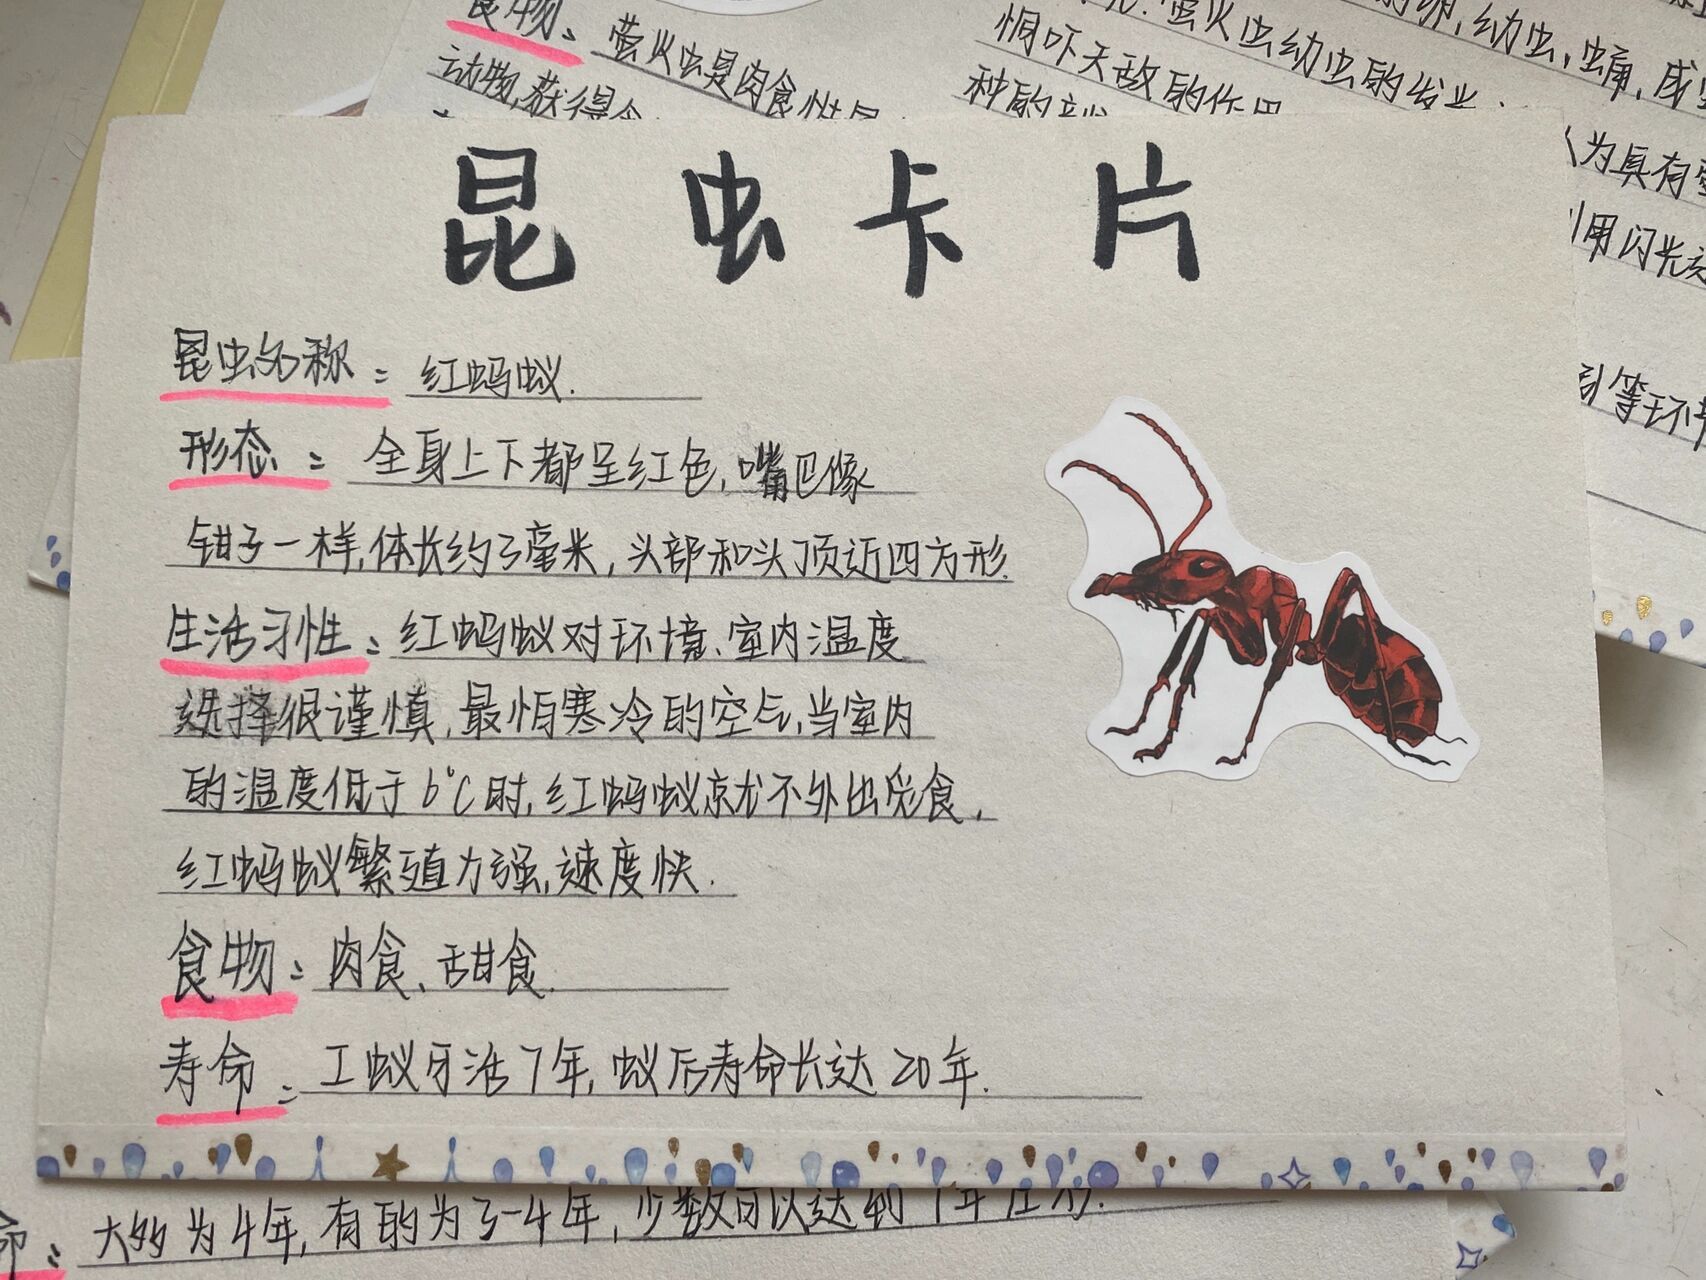 食物：萤火虫是肉食性昆
动物，获得食
萤火虫幼虫的发光
恫吓天敌的作用
种的
卵，幼虫，蛹，成虫
为具有
利用闪光
引等环节
昆虫卡片
昆虫名称：红蚂蚁.
形态：全身上下都呈红色，嘴巴像
钳子一样，体长约3毫米，头部和头顶近四方形.
生活习性：红蚂蚁对环境、室内温度
选择很谨慎，最怕寒冷的空气，当室内
的温度低于6℃时，红蚂蚁就不外出觅食，
红蚂蚁繁殖力强，速度快.
食物：肉食、甜食.
寿命：工蚁牙活7年，蚁后寿命长达20年.
命：大多为4年，有的为3-4年，少数可以达到7年左右.